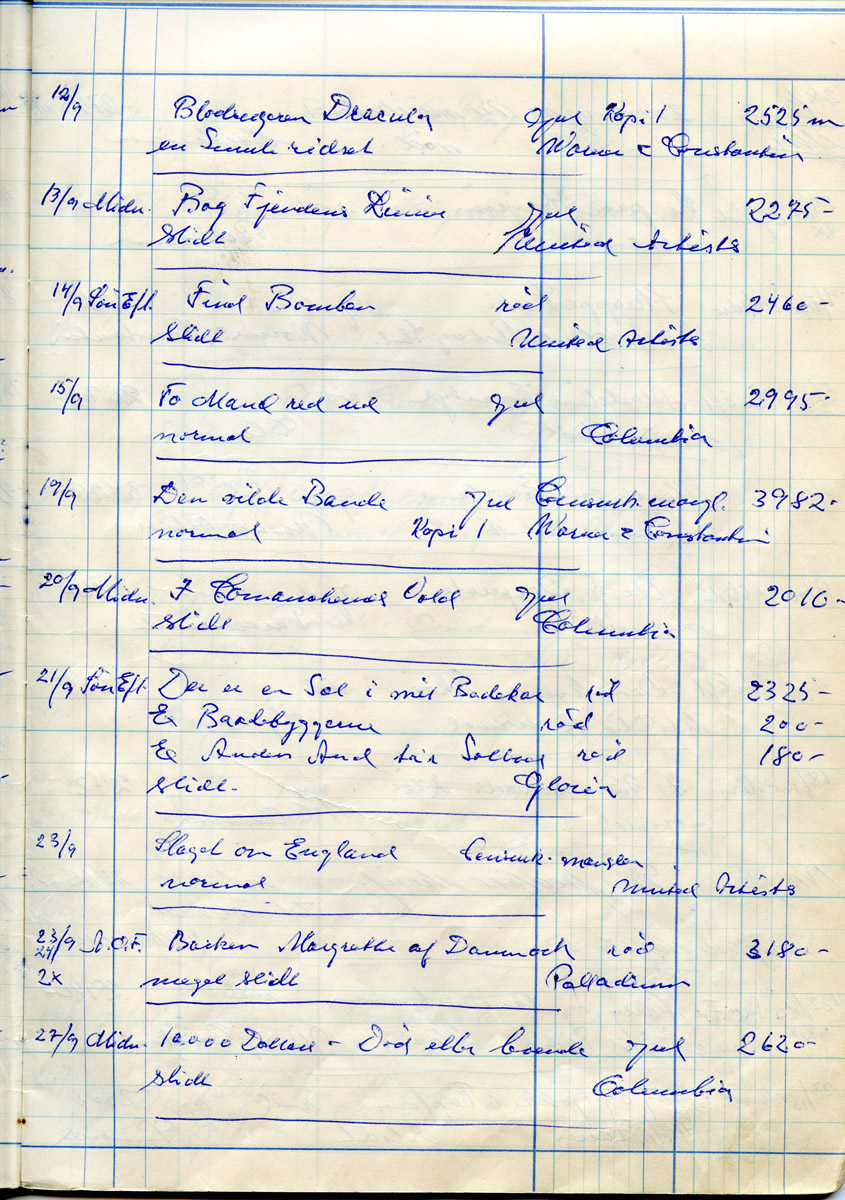 12/9 Blodsugeren Dracula gul Kopi 1 2525 m
en Smule ridset Warner & Constantin
13/9 Midn. Bag Fjendens Linier gul 2275-
Slidt United Artists
14/9 Søn Eft. Find Bomben rød 2460-
Slidt United Artists
15/9 To Mand red ud gul 2995-
normal Columbia
19/9 Den vilde Bande gul Censurk. mangl. 3982-
normal Kopi 1 Warner & Constantin
20/9 Midn. I Comancheros Vold gul 2010-
Slidt Columbia
21/9 Søn Eft. Der er en Sol i mit Badekar rød 2325-
Ex Baadebyggerne rød 200-
Ex Anders And rød 180-
Slidt. Gloria
23/9 Slaget om England Censurk. mangler
normal United Artists
23/9 24/ A.O.F. Barken Margrethe af Danmark rød 3180-
2x meget slidt Palladium
27/9 Midn. 10.000 Dollars - Død eller levende gul 2620-
Slidt Columbia